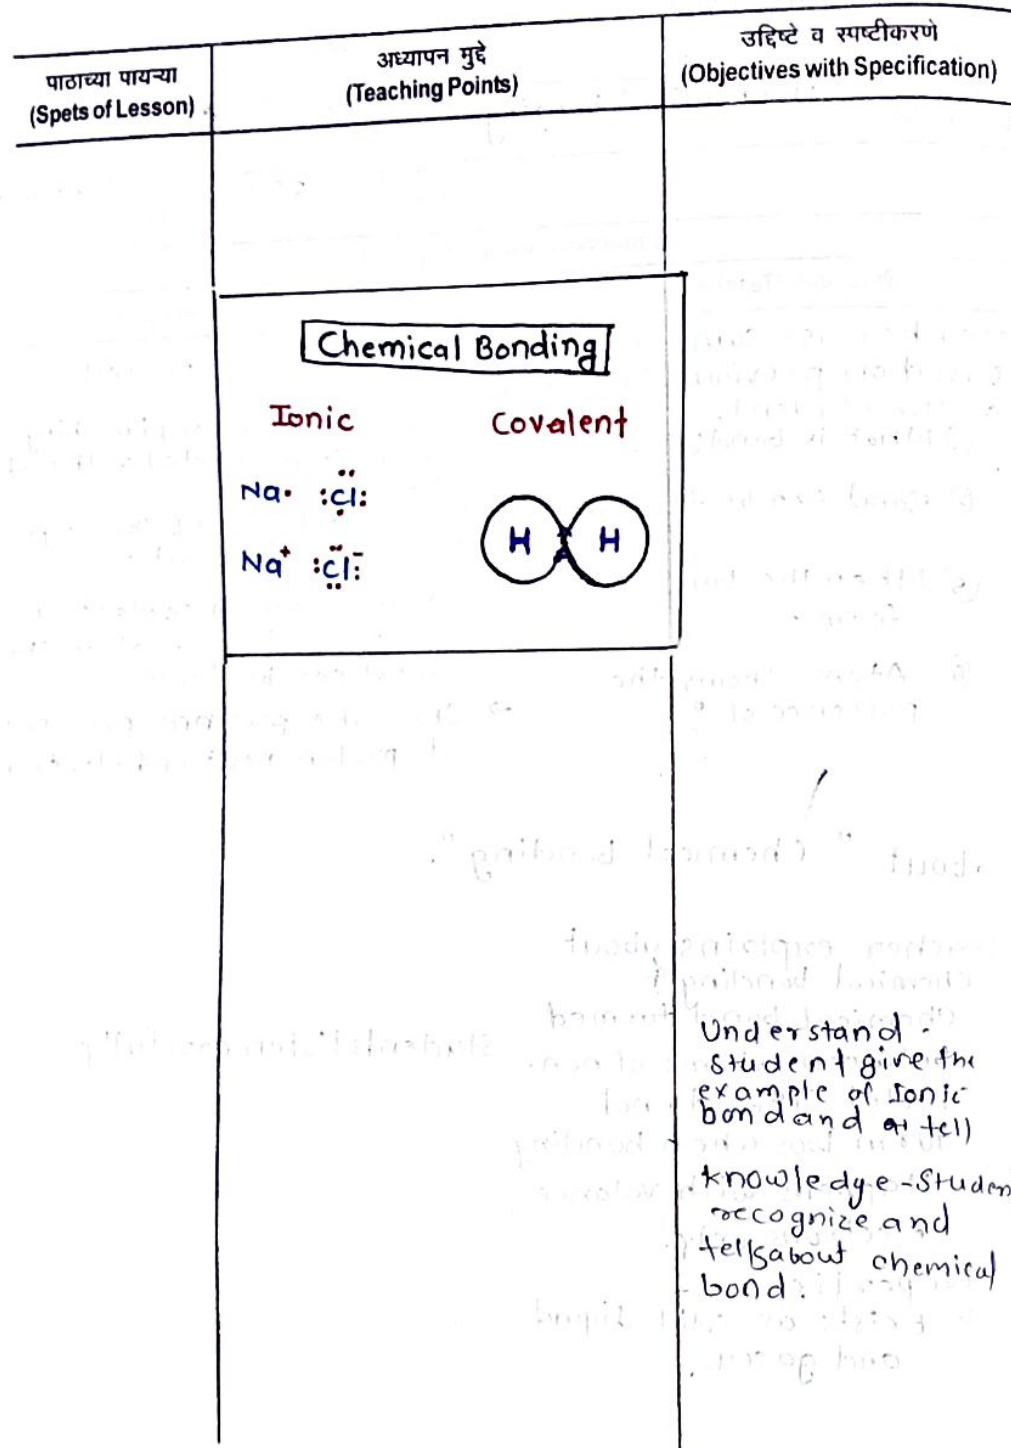 पाठाच्या पायऱ्या
(Spets of Lesson)
अध्यापन मुद्दे
(Teaching Points)
उद्दिष्टे व स्पष्टीकरणे
(Objectives with Specification)
Chemical Bonding
Ionic
Covalent
Na· :Cl:
Na⁺ :Cl:⁻
H H
Understand -
Student give the
example of Ionic
bond and tell
knowledge - Studen
recognize and
tells about chemical
bond.